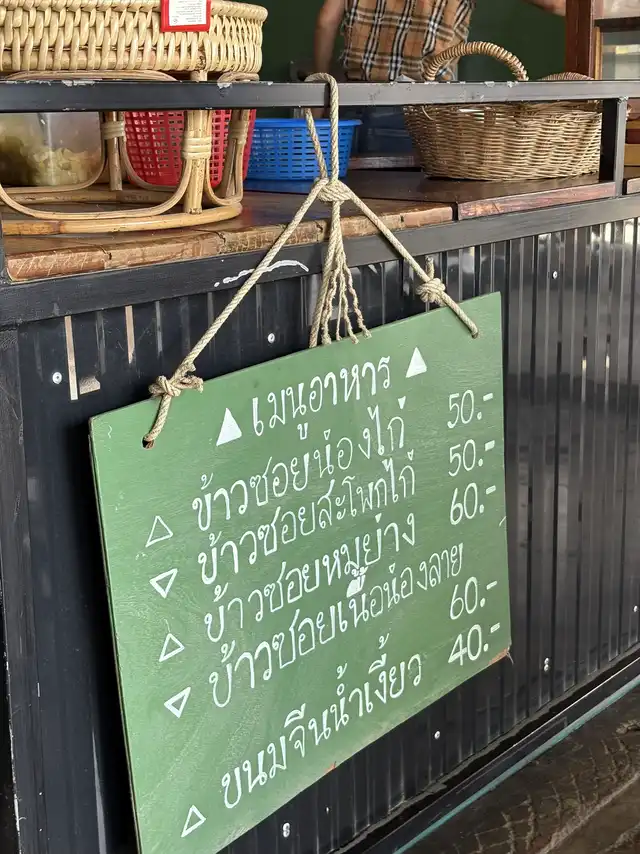 เมนูอาหาร
ข้าวซอยน่องไก่ 50.-
ข้าวซอยสะโพกไก่ 50.-
ข้าวซอยหมูย่าง 60.-
ข้าวซอยเนื้อน่องลาย 60.-
ขนมจีนน้ำเงี้ยว 40.-